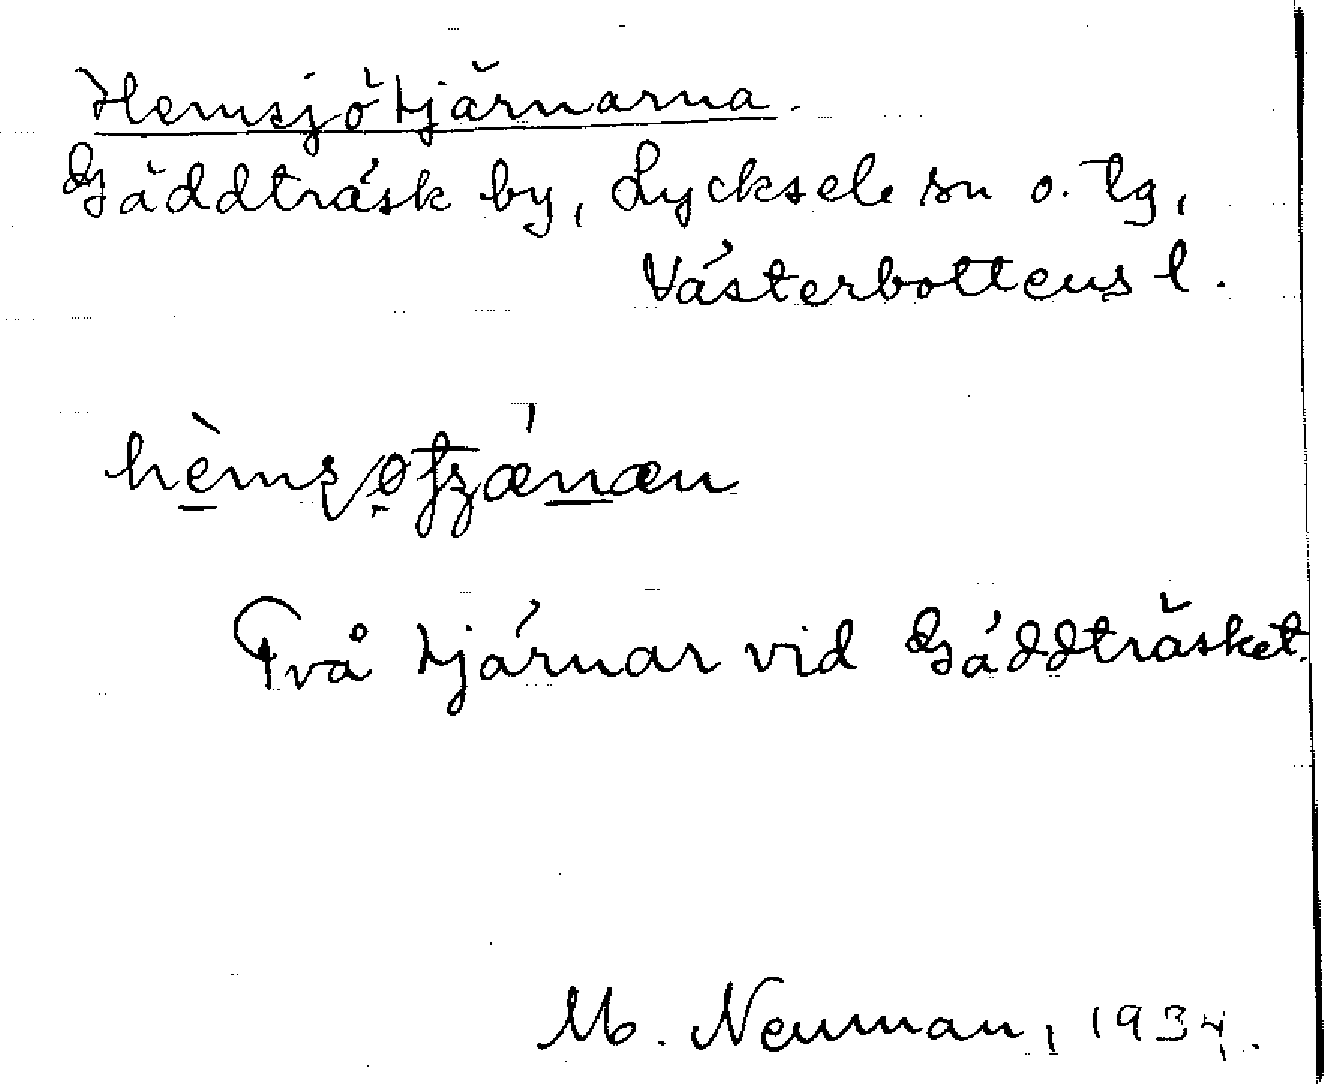 Hemsjötjärnarna.
Gäddträsk by, Lycksele sn o. tg,
Västerbottens l.
Två tjärnar vid Gäddträsket.
M. Neuman, 1934.